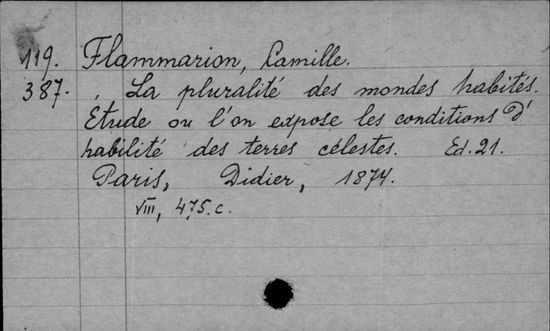 119. Flammarion, Camille.
387. , La pluralité des mondes habités.
Etude ou l'on expose les conditions d'
habilité des terres célestes. Ed. 21.
Paris, Didier, 1874.
VIII, 475. c.